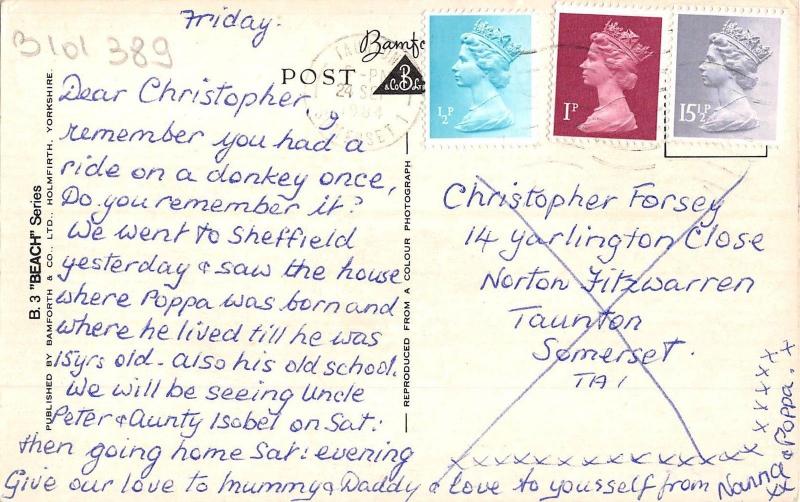 Friday.
B101 389
Bamfo
POST
B
& Co Ld
24 SE
1984
SOMERSET 1
½P
1P
15½P
Dear Christopher,
I
remember you had a
ride on a donkey once,
Do you remember it?
We went to Sheffield
yesterday & saw the house
where Poppa was born and
where he lived till he was
15yrs old - also his old school.
We will be seeing Uncle
Peter & Aunty Isobel on Sat:
then going home Sat: evening
Give our love to Mummy & Daddy & love to yousself from Nanna
& Poppa. x
x x x x x x x x x x x x x x
x x x x x x
xx
Christopher Forsey
14 Yarlington Close
Norton Fitzwarren
Taunton
Somerset.
TA1
B. 3 "BEACH" Series
PUBLISHED BY BAMFORTH & CO., LTD., HOLMFIRTH, YORKSHIRE.
REPRODUCED FROM A COLOUR PHOTOGRAPH